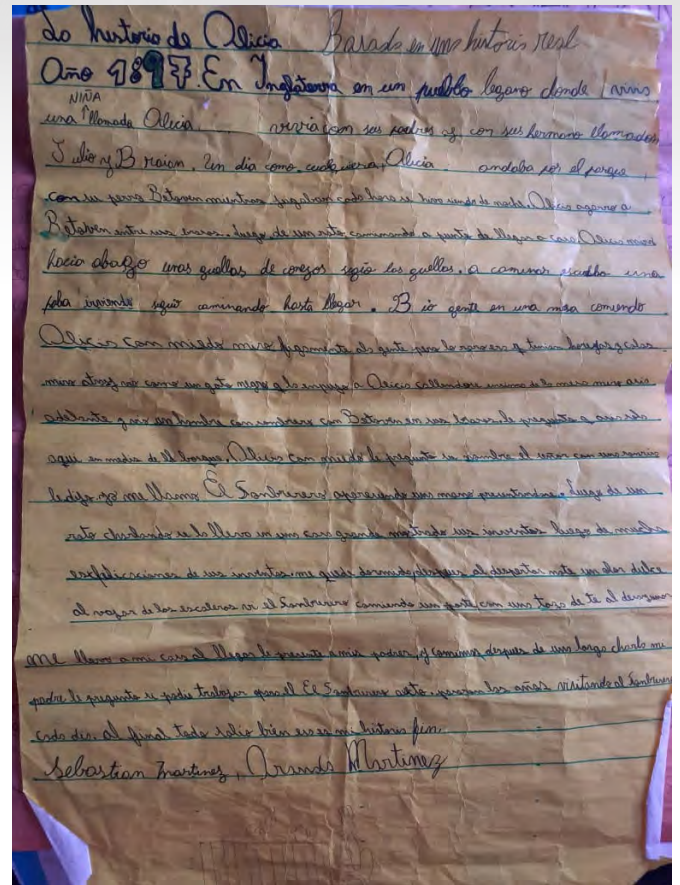 La historia de Alicia Basada en una historia real
Año 1897. En Inglaterra en un pueblo legano donde vivia
NIÑA
una llamada Alicia vivia con sus padres y con sus hermano llamados
Julio y Braian. Un dia como cualquiera, Alicia andaba por el parque,
con su perro Betoven mientras jugaban cada hora se hiva siendo de noche. Alicia agarro a
Betoven entre sus brasos. Luego de un rato caminando a punto de llegar a casa Alicia
hacia abajo unas guellas de conejos sigio las guellas. a caminar escucho una
siguio caminando hasta llegar. Bio gente en una mesa comiendo
Alicia con miedo miro figamente ala gente pero lo raro es q tenian horejas y colas
miro atras vio como un gato negro q la enpujo a Alicia callendose ensima de la mesa miro asia
adelante y vio un hombre con sombrero con Betoven en sus brasos. le pregunto q asia sola
aqui en medio de el bosque, Alicia con miedo le pregunto su nombre el señor con una sonrisa
le dijo yo me llamo El Sombrerero apareciendo una mano presentandose. Luego de un
rato charlando se la llevo en una casa grande mostrado sus inventos luego de mucha
explicaciones de sus inventos me quede dormida, despues al despertar note un olor dulce
al vagar de las escaleras vi el Sombrerero comiendo un paste con una taza de té al
me llevo a mi casa al llegar le presente a mis padres, y comimos despues de una larga charla mi
padre le pregunto si podia trabajar para el El Sombrerero aseto. pasaron los años visitando al Sombrerero
cada dia. al final todo salio bien esa es mi historia fin.
Sebastian Martinez, Martinez